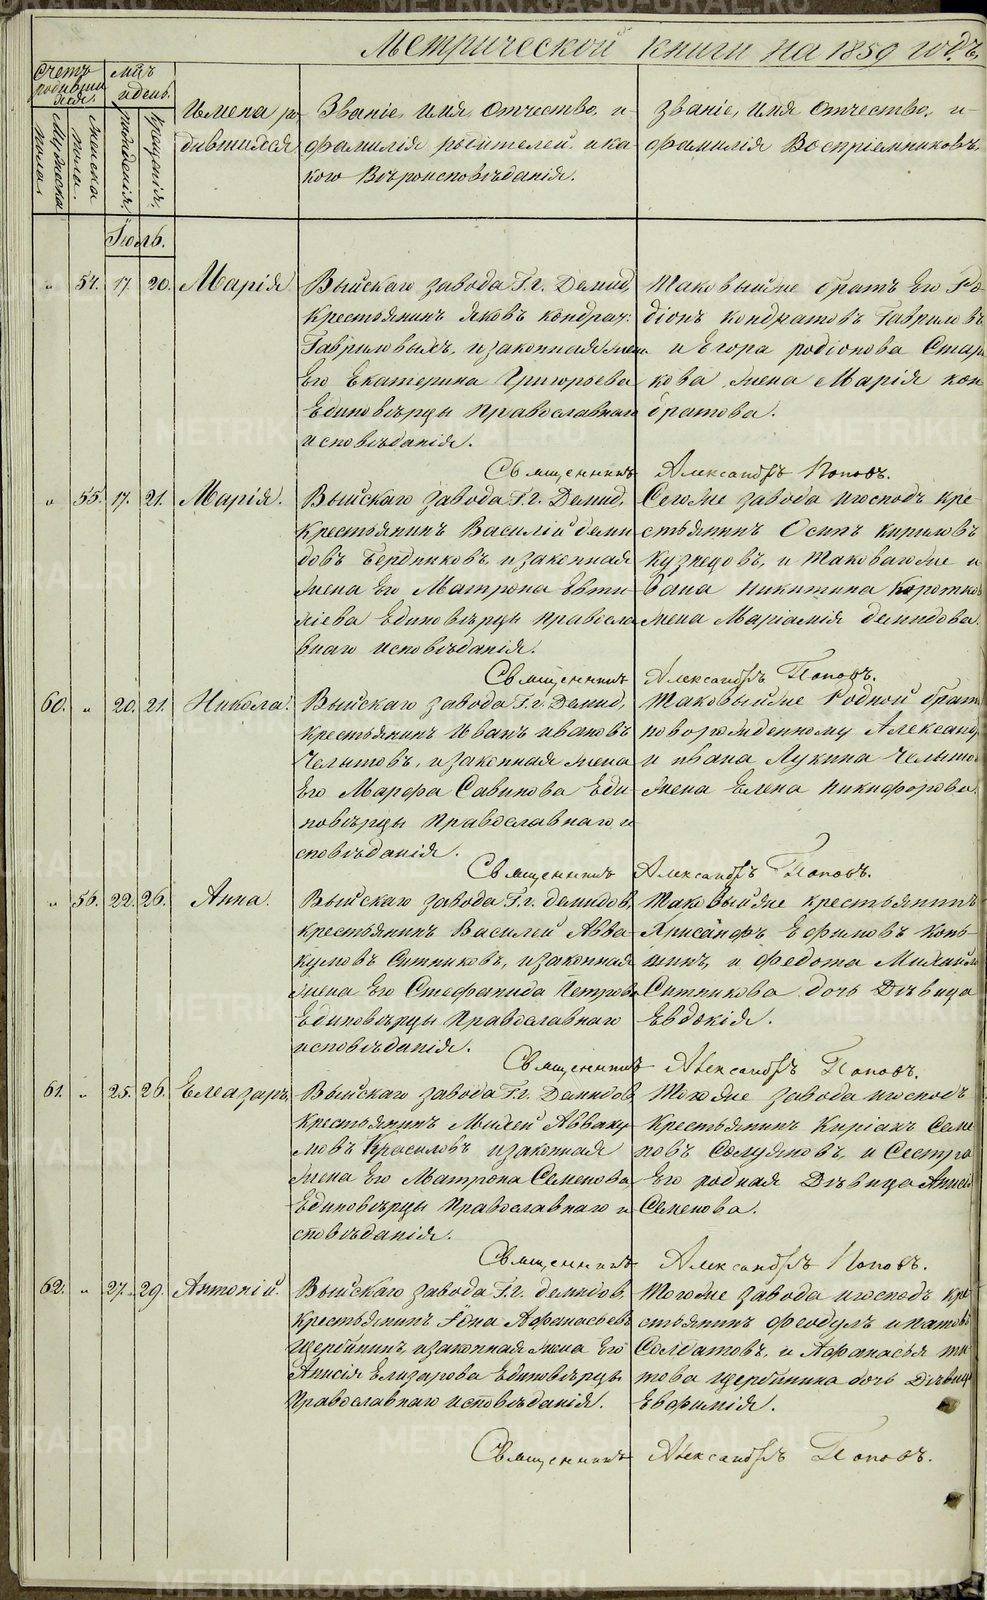 Метрической книги на 1859 годъ.
Счетъ родившихся.
Мужеска пола.
Женска пола.
М-цъ и день.
рожденія.
крещенія.
Имена родившихся
Званіе, имя, отчество, и
фамилія родителей и ка
кого Вѣроисповѣданія.
Званіе, имя, отчество, и
фамилія Воспріемниковъ.
Іюль.
" 54. 17. 20. Марія
Выйскаго завода Г.г. Демид.
Крестьянинъ Яковъ Кондрат.
Гавриловыхъ, изаконная жена
Его Екатерина Григорьева
Единовѣрцы Православнаго
исповѣданія.
Таковыйже братъ Его Ро
діонъ Кондратовъ Гавриловъ
и Егора родіонова Стар
кова жена Марія кон
дратова.
Священникъ Александръ Поповъ.
" 55. 17. 21. Марія.
Выйскаго завода Г.г. Демид.
Крестьянинъ Василій деми
довъ Бердниковъ, изаконная
жена Его Матрона Евти
хіева Единовѣрцы Правосла
внаго исповѣданія.
Сегоже завода игосподъ кре
стьянинъ Осипъ кириловъ
Кузнецовъ, и таковагоже и
вана Никитина Коротков
жена Маріамія демидова.
Священникъ Александръ Поповъ.
60. " 20. 21. Николай.
Выйскаго завода Г.г. Демид.
крестьянинъ Иванъ ивановъ
Челышовъ, изаконная жена
Его Марфа Савинова Еди
новѣрцы Православнаго и
сповѣданія.
Таковыйже Родной братъ
новорожденному Александ.
и ивана Лукина Челышо
жена Елена Никифорова.
Священникъ Александръ Поповъ.
" 56. 22. 26. Анна.
Выйскаго завода Г.г. демидов.
крестьянинъ Василей Авва
кумовъ Ситниковъ, изаконная
жена Его Стефанида Петров
Единовѣрцы Православнаго
исповѣданія.
Таковыйже крестьянинъ
Хрисанфъ Ефимовъ Копь
шинъ, и федота Михайло
Ситникова дочь Дѣвица
Евдокія.
Священникъ Александръ Поповъ.
61. " 25. 26. Елеазаръ.
Выйскаго завода Г.г. Демидов
крестьянинъ Михей Авваку
мовъ Красиловъ изаконная
жена Его Матрона Семенова,
Единовѣрцы Православнаго и
сповѣданія.
Тогоже завода игосподъ
Крестьянинъ Киріакъ Семе
новъ Солдатовъ, и Сестра
Его родная Дѣвица Анисія
Семенова.
Священникъ Александръ Поповъ.
62. " 27. 29. Антоній.
Выйскаго завода Г.г. демидов.
крестьянинъ Іона Афанасьевъ
Щербининъ изаконная жена Его
Анисія Елизарова Единовѣрцы
Православнаго исповѣданія.
Тогоже завода игосподъ кре
стьянинъ Феодулъ ипатовъ
Солдатовъ, и Афанасья ти
това Щербинина дочь Дѣвица
Евфимія.
Священникъ Александръ Поповъ.
METRIKI.GASO-URAL.RU